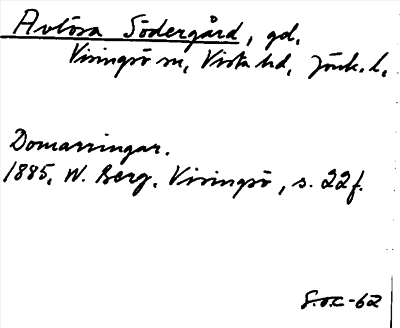 Avlösa Södergård, gd.
Visingsö sn, Vista hd, Jönk. l.
Domarringar.
1885, W. Berg, Visingsö, s. 22 f.
S.O.C-62